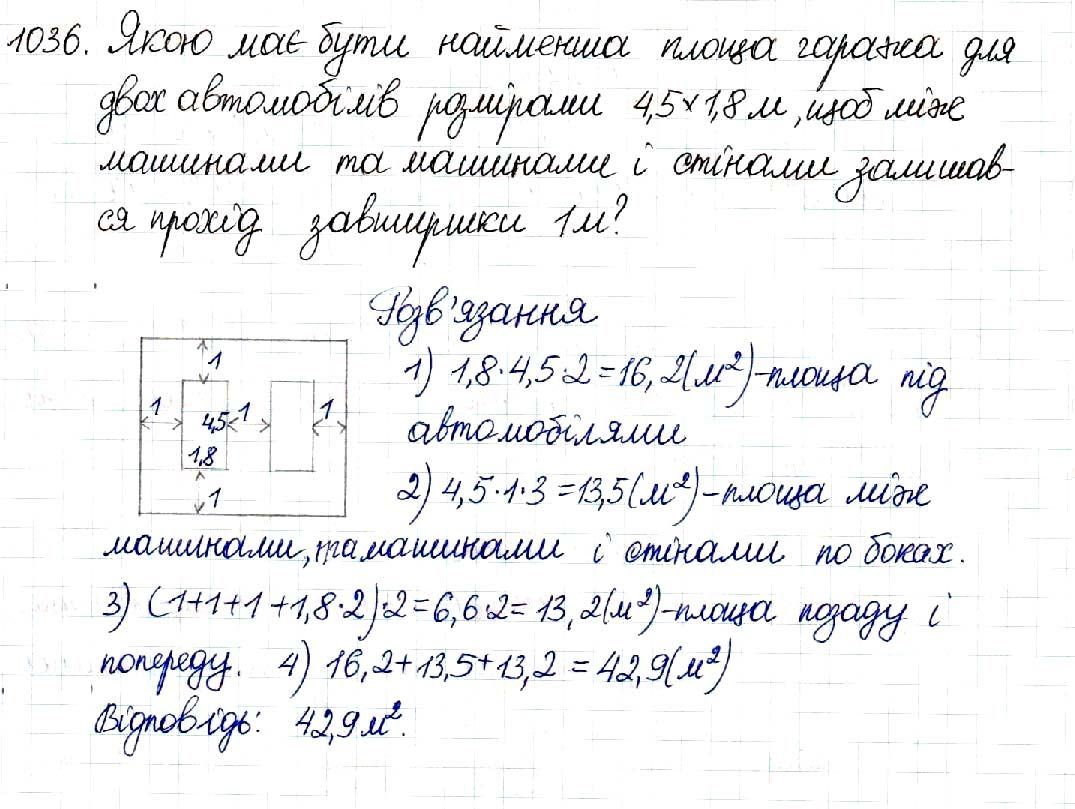 1036. Якою має бути найменша площа гаража для
двох автомобілів розмірами 4,5×1,8 м, щоб між
машинами та машинами і стінами залишав-
ся прохід завширшки 1м?
Розв'язання
1
1
4,5
1
1
1,8
1
1) 1,8·4,5·2=16,2(м²)-площа під
автомобілями
2) 4,5·1·3=13,5(м²)-площа між
машинами, та машинами і стінами по боках.
3) (1+1+1+1,8·2)·2=6,6·2=13,2(м²)-площа позаду і
попереду. 4) 16,2+13,5+13,2=42,9(м²)
Відповідь: 42,9м².